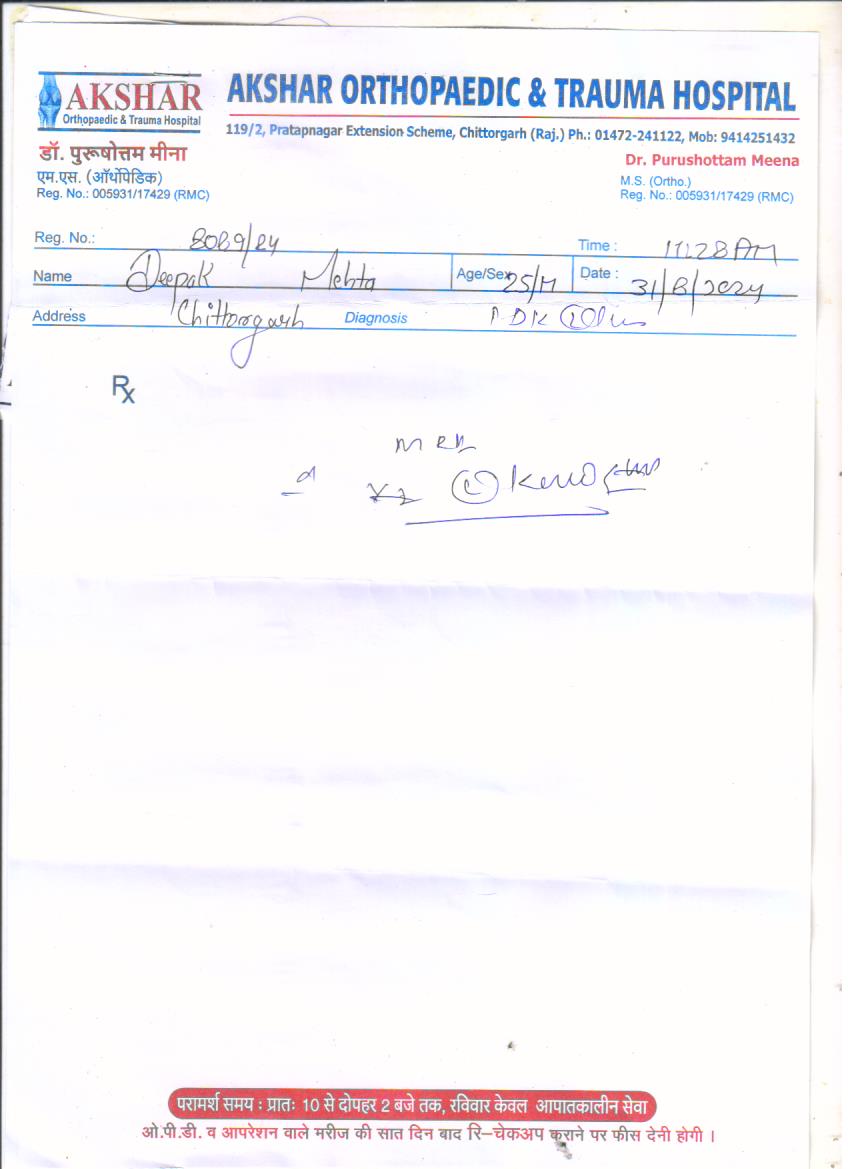 AKSHAR
Orthopaedic & Trauma Hospital
AKSHAR ORTHOPAEDIC & TRAUMA HOSPITAL
119/2, Pratapnagar Extension Scheme, Chittorgarh (Raj.) Ph.: 01472-241122, Mob: 9414251432
डॉ. पुरूषोत्तम मीना
एम.एस. (ऑर्थोपेडिक)
Reg. No.: 005931/17429 (RMC)
Dr. Purushottam Meena
M.S. (Ortho.)
Reg. No.: 005931/17429 (RMC)
Reg. No.: Time : 11:28 AM
Name Deepak Mehta Age/Sex 25/M Date : 31/8/2024
Address Chittorgarh Diagnosis
Rx
परामर्श समय : प्रातः 10 से दोपहर 2 बजे तक, रविवार केवल आपातकालीन सेवा
ओ.पी.डी. व आपरेशन वाले मरीज की सात दिन बाद रि-चेकअप कराने पर फीस देनी होगी ।